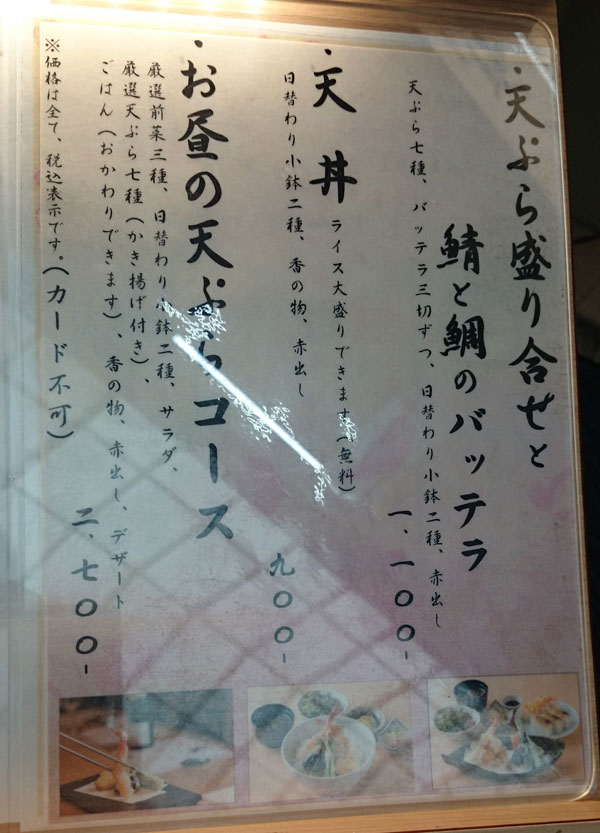 ・天ぷら盛り合せと
鯖と鯛のバッテラ
天ぷら七種、バッテラ三切ずつ、日替わり小鉢二種、赤出し
一、一〇〇-
・天丼
ライス大盛りできます(無料)
日替わり小鉢二種、香の物、赤出し
九〇〇-
・お昼の天ぷらコース
厳選前菜三種、日替わり小鉢二種、サラダ、
厳選天ぷら七種(かき揚げ付き)、
ごはん(おかわりできます)、香の物、赤出し、デザート
二、七〇〇-
※価格は全て、税込表示です。(カード不可)